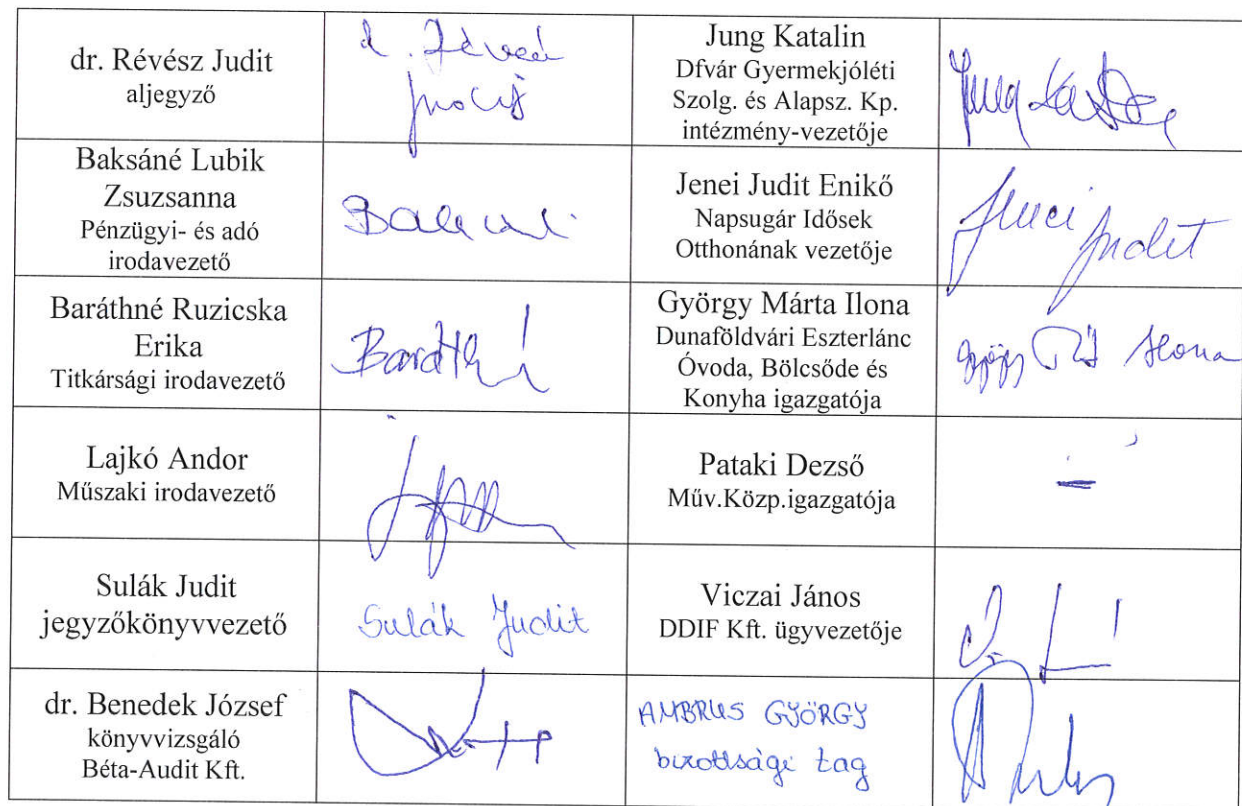 dr. Révész Judit
aljegyző
Jung Katalin
Dfvár Gyermekjóléti
Szolg. és Alapsz. Kp.
intézmény-vezetője
Baksáné Lubik
Zsuzsanna
Pénzügyi- és adó
irodavezető
Jenei Judit Enikő
Napsugár Idősek
Otthonának vezetője
Jenei Judit
Baráthné Ruzicska
Erika
Titkársági irodavezető
Baráthné
György Márta Ilona
Dunaföldvári Eszterlánc
Óvoda, Bölcsőde és
Konyha igazgatója
Ilona
Lajkó Andor
Műszaki irodavezető
Pataki Dezső
Műv.Közp.igazgatója
Sulák Judit
jegyzőkönyvvezető
Sulák Judit
Viczai János
DDIF Kft. ügyvezetője
dr. Benedek József
könyvvizsgáló
Béta-Audit Kft.
AMBRUS GYÖRGY
bizottsági tag